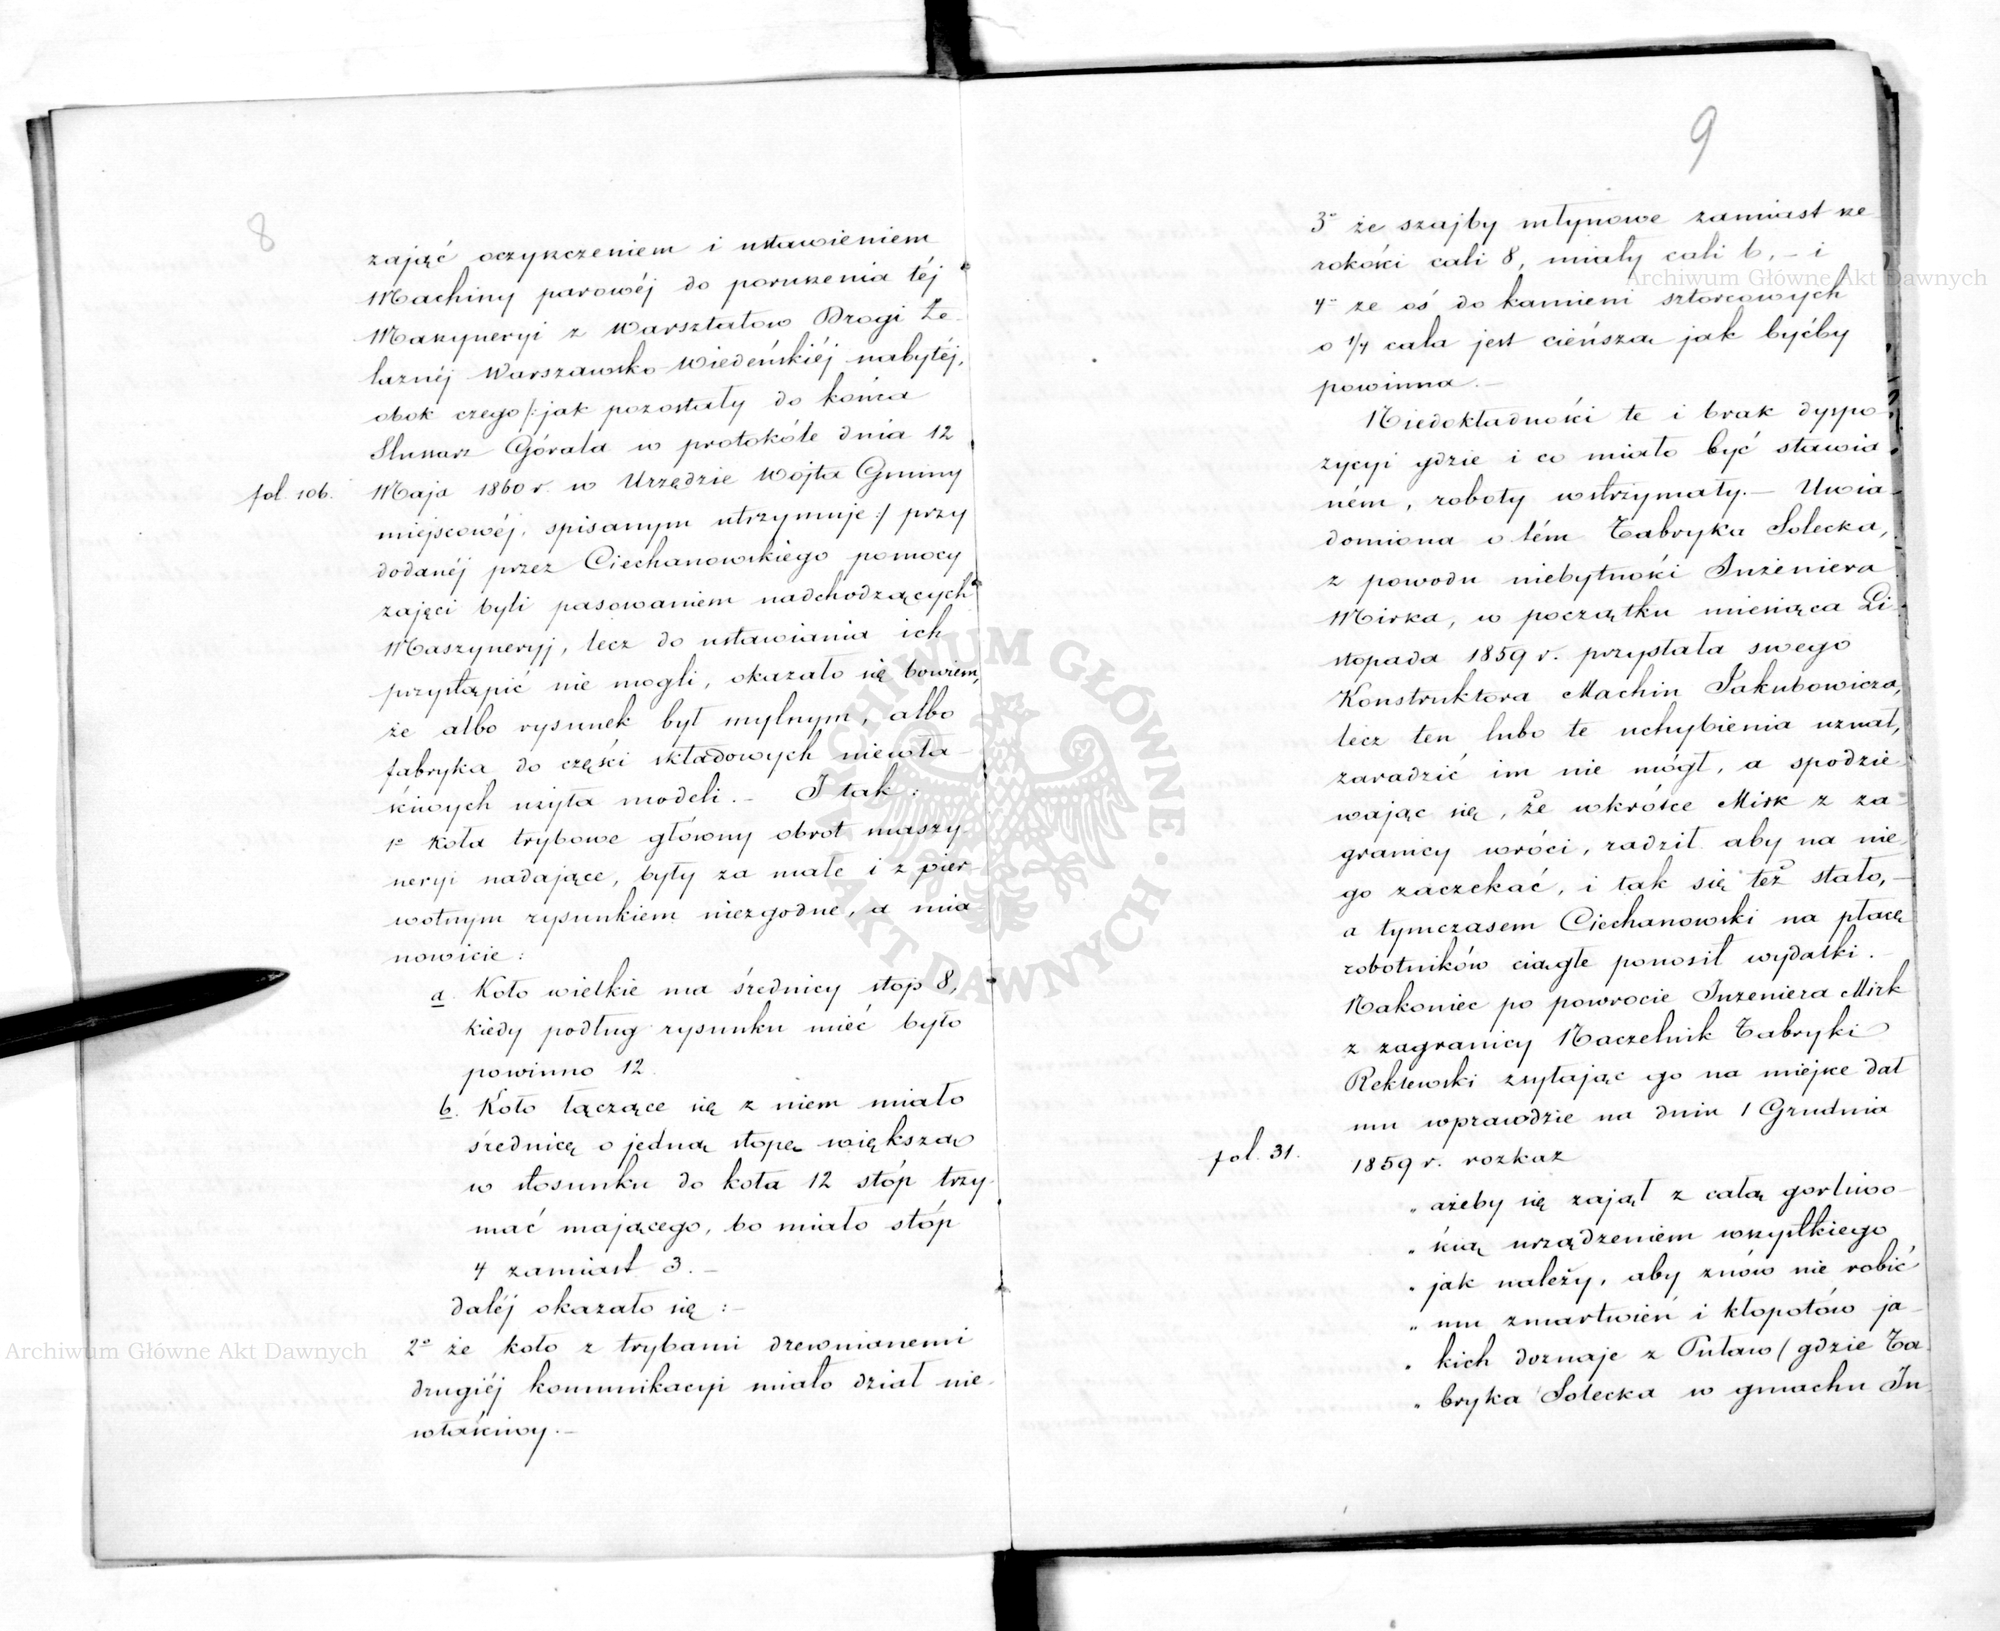 8
zająć oczyszczeniem i ustawieniem
Machiny parowéj do poruszenia téj
Maszyneryi z Warsztatów Drogi Że-
laznéj Warszawsko Wiedeńskiéj nabytéj,
obok czego /:jak pozostały do końca
Slusarz Górala w protokóle dnia 12
fol. 106. Maja 1860 r. w Urzędzie Wójta Gminy
miejscowéj, spisanym utrzymuje:/ przy
dodanéj przez Ciechanowskiego pomocy
zajęci byli pasowaniem nadchodzących
Maszyneryj, lecz do ustawiania ich
przystąpić nie mogli, okazało się bowiem,
że albo rysunek był mylnym, albo
fabryka do części składowych niewła-
ściwych użyła modeli. – I tak:
1º Koła trybowe główny obrot maszy-
neryi nadające, były za małe i z pier-
wotnym rysunkiem niezgodne, a mia-
nowicie:
a. Koło wielkie ma średnicy stóp 8,
kiedy podług rysunku mieć było
powinno 12.
b. Koło łączące się z niem miało
średnicę o jedną stopę większą
w stosunku do koła 12 stóp trzy-
mać mającego, bo miało stóp
4 zamiast 3. –
daléj okazało się: –
2º że koło z trybami drewnianemi
drugiéj komunikacyi miało dział nie-
właściwy. –
9
3º że szajby młynowe zamiast sze-
rokości cali 8, miały cali 6, – i
4º że oś do kamieni sztorcowych
o 1/4 cala jest cieńsza jak byćby
powinna. –
Niedokładności te i brak dyspo-
zycyi gdzie i co miało być stawia-
ném, roboty wstrzymały. – Uwia-
domiona o tém Fabryka Solecka,
z powodu niebytności Inżeniera
Mirka, w początku miesiąca Li-
stopada 1859 r. przysłała swego
Konstruktora Machin Jakubowicza,
lecz ten lubo te uchybienia uznał,
zaradzić im nie mógł, a spodzie-
wając się, że wkrótce Mirk z za-
granicy wróci, radził aby na nie-
go zaczekać, i tak się też stało, –
a tymczasem Ciechanowski na płacę
robotników ciągłe ponosił wydatki. –
Nakoniec po powrocie Inżeniera Mirk
z zagranicy Naczelnik Fabryki
Reklewski zsyłając go na miejsce dał
mu wprawdzie na dniu 1 Grudnia
fol. 31. 1859 r. rozkaz
„ ażeby się zajął z całą gorliwo-
„ ścią urządzeniem wszystkiego
„ jak należy, aby znów nie robić
„ mu zmartwień i kłopotów ja-
„ kich doznaje z Puław (gdzie Fa-
„ bryka Solecka w gmachu In-
Archiwum Główne Akt Dawnych
Archiwum Główne Akt Dawnych
ARCHIWUM GŁÓWNE AKT DAWNYCH